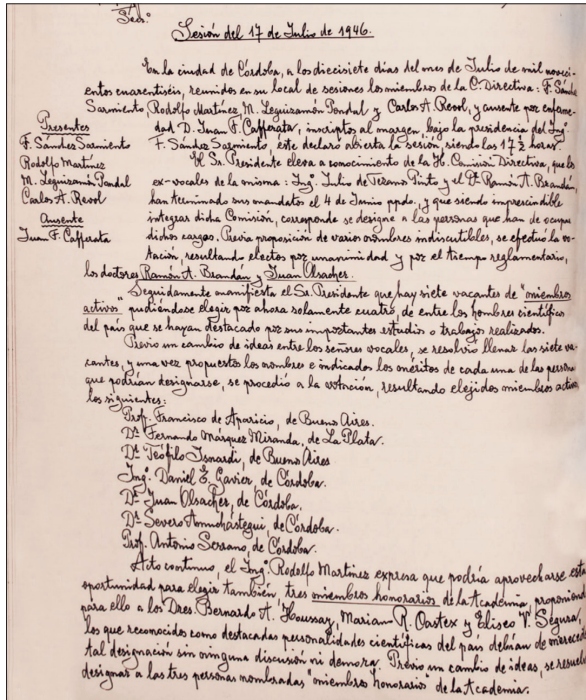 Secr.º
Sesión del 17 de Julio de 1946.
En la ciudad de Córdoba, a los diecisiete días del mes de Julio de mil noveci-
entos cuarentiséis, reunidos en su local de sesiones los miembros de la C. Directiva: F. Sánchez
Sarmiento, Rodolfo Martínez, M. Leguizamón Pondal y Carlos A. Revol, y ausente por enferme-
dad D. Juan F. Cafferata, inscriptos al margen, bajo la presidencia del Ing.
F. Sánchez Sarmiento, este declaró abierta la sesión, siendo las 17½ horas.
Presentes
F. Sánchez Sarmiento
Rodolfo Martínez
M. Leguizamón Pondal
Carlos A. Revol
Ausente
Juan F. Cafferata
El Sr. Presidente eleva a conocimiento de la H. Comisión Directiva, que los
ex-vocales de la misma: Ing. Julio de Tezanos Pinto y el Dr. Ramón A. Brandán
han terminado sus mandatos el 4 de Junio ppdo. y que siendo imprescindible
integrar dicha Comisión, corresponde se designe a las personas que han de ocupar
dichos cargos. Previa proposición de varios nombres indiscutibles, se efectuó la vo-
tación, resultando electos por unanimidad y por el tiempo reglamentario,
los doctores Ramón A. Brandán y Juan Olsacher.
Seguidamente manifiesta el Sr. Presidente que hay siete vacantes de "miembros
activos" pudiéndose elegir por ahora solamente cuatro, de entre los hombres científicos
del país que se hayan destacado por sus importantes estudios o trabajos realizados.
Previo un cambio de ideas entre los señores vocales, se resolvió llenar las siete va-
cantes, y una vez propuestos los nombres e indicados los méritos de cada una de las personas
que podrían designarse, se procedió a la votación, resultando elejidos miembros activos
los siguientes:
Prof. Francisco de Aparicio, de Buenos Aires.
Dr. Fernando Márquez Miranda, de La Plata.
Dr. Teófilo Isnardi, de Buenos Aires
Ing. Daniel E. Gavier, de Córdoba.
Dr. Juan Olsacher, de Córdoba.
Dr. Severo Amuchástegui, de Córdoba.
Prof. Antonio Serrano, de Córdoba.
Acto continuo, el Ing. Rodolfo Martínez expresa que podría aprovecharse esta
oportunidad para elegir también, tres miembros honorarios de la Academia, proponiendo
para ello a los Dres. Bernardo A. Houssay, Mariano R. Castex y Eliseo V. Segura,
los que reconocidos como destacadas personalidades científicas del país debían de merecer
tal designación sin ninguna discusión ni demora. Previo un cambio de ideas, se resuelve
designar a las tres personas nombradas "miembros honorarios" de la Academia.